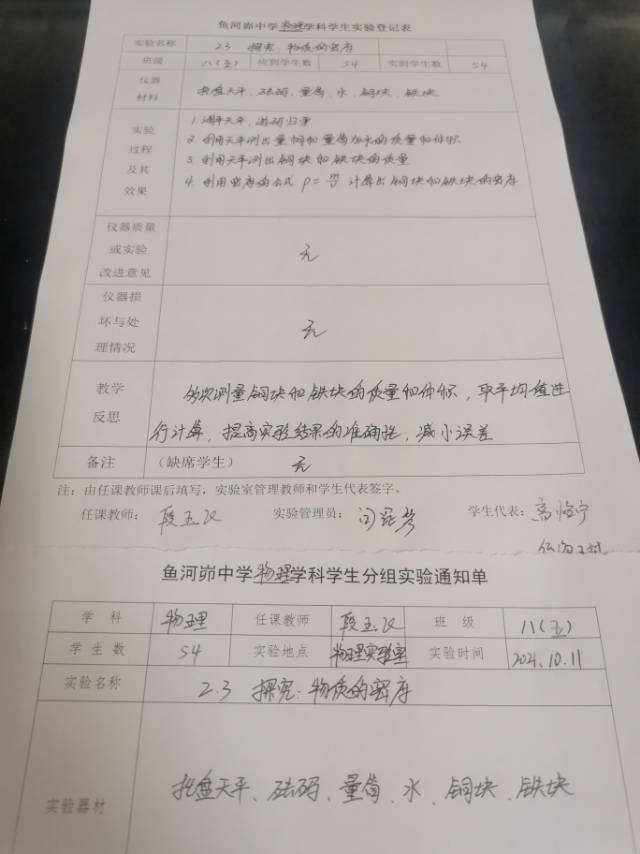 鱼河峁中学物理学科学生实验登记表
实验名称 2.3 探究:物质的密度
班级 八(五) 应到学生数 54 实到学生数 54
仪器
材料
托盘天平、砝码、量筒、水、铜块、铁块
实验
过程
及其
效果
1 调平天平,游码归零
2 利用天平测出量筒和量筒加水的质量和体积
3 利用天平测出铜块和铁块的质量
4 利用密度的公式 ρ=m/V 计算出铜块和铁块的密度
仪器质量
或实验
改进意见
无
仪器损
坏与处
理情况
无
教学
反思
多次测量铜块和铁块的质量和体积,取平均值进
行计算,提高实验结果的准确性,减小误差
备注 (缺席学生) 无
注:由任课教师课后填写,实验室管理教师和学生代表签字。
任课教师: 段玉 实验管理员: 学生代表: 高
鱼河峁中学物理学科学生分组实验通知单
学 科 物理 任课教师 段玉 班 级 八(五)
学 生 数 54 实验地点 物理实验室 实验时间 2021.10.11
实验名称 2.3 探究:物质的密度
实验器材 托盘天平、砝码、量筒、水、铜块、铁块